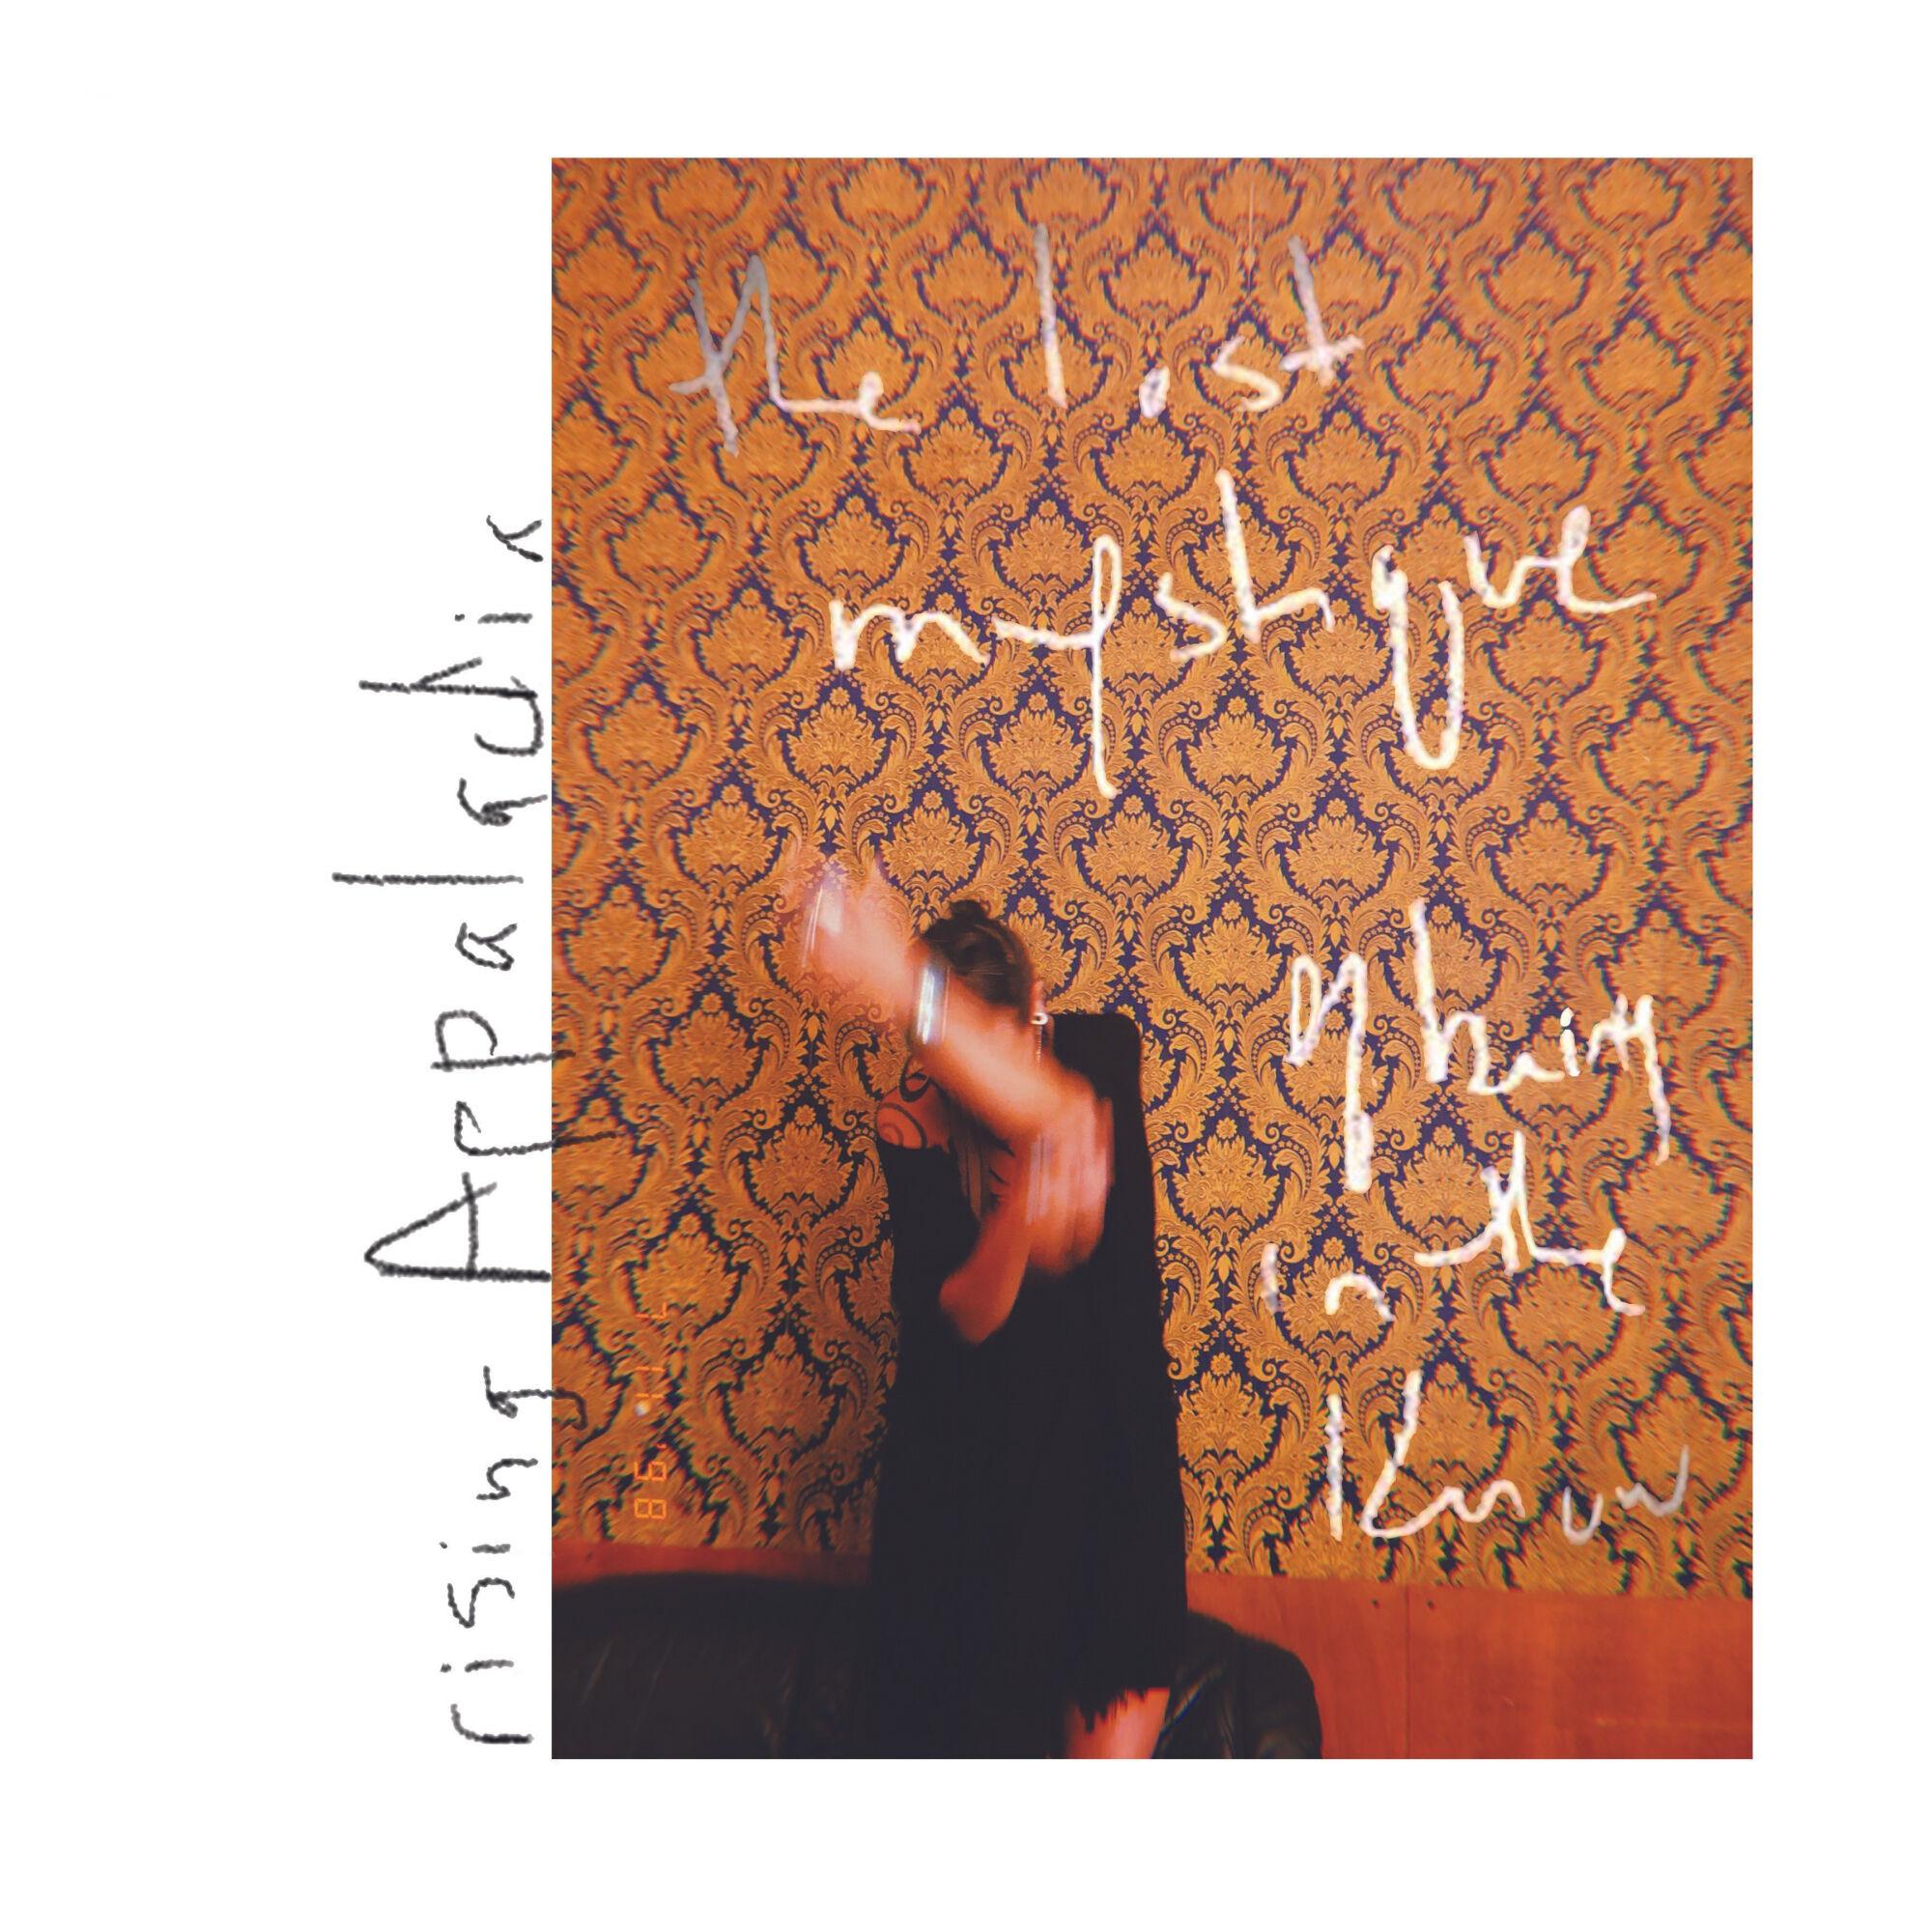 rising Appalachia
the lost
mystique
of being
in the
know
86. 41 L